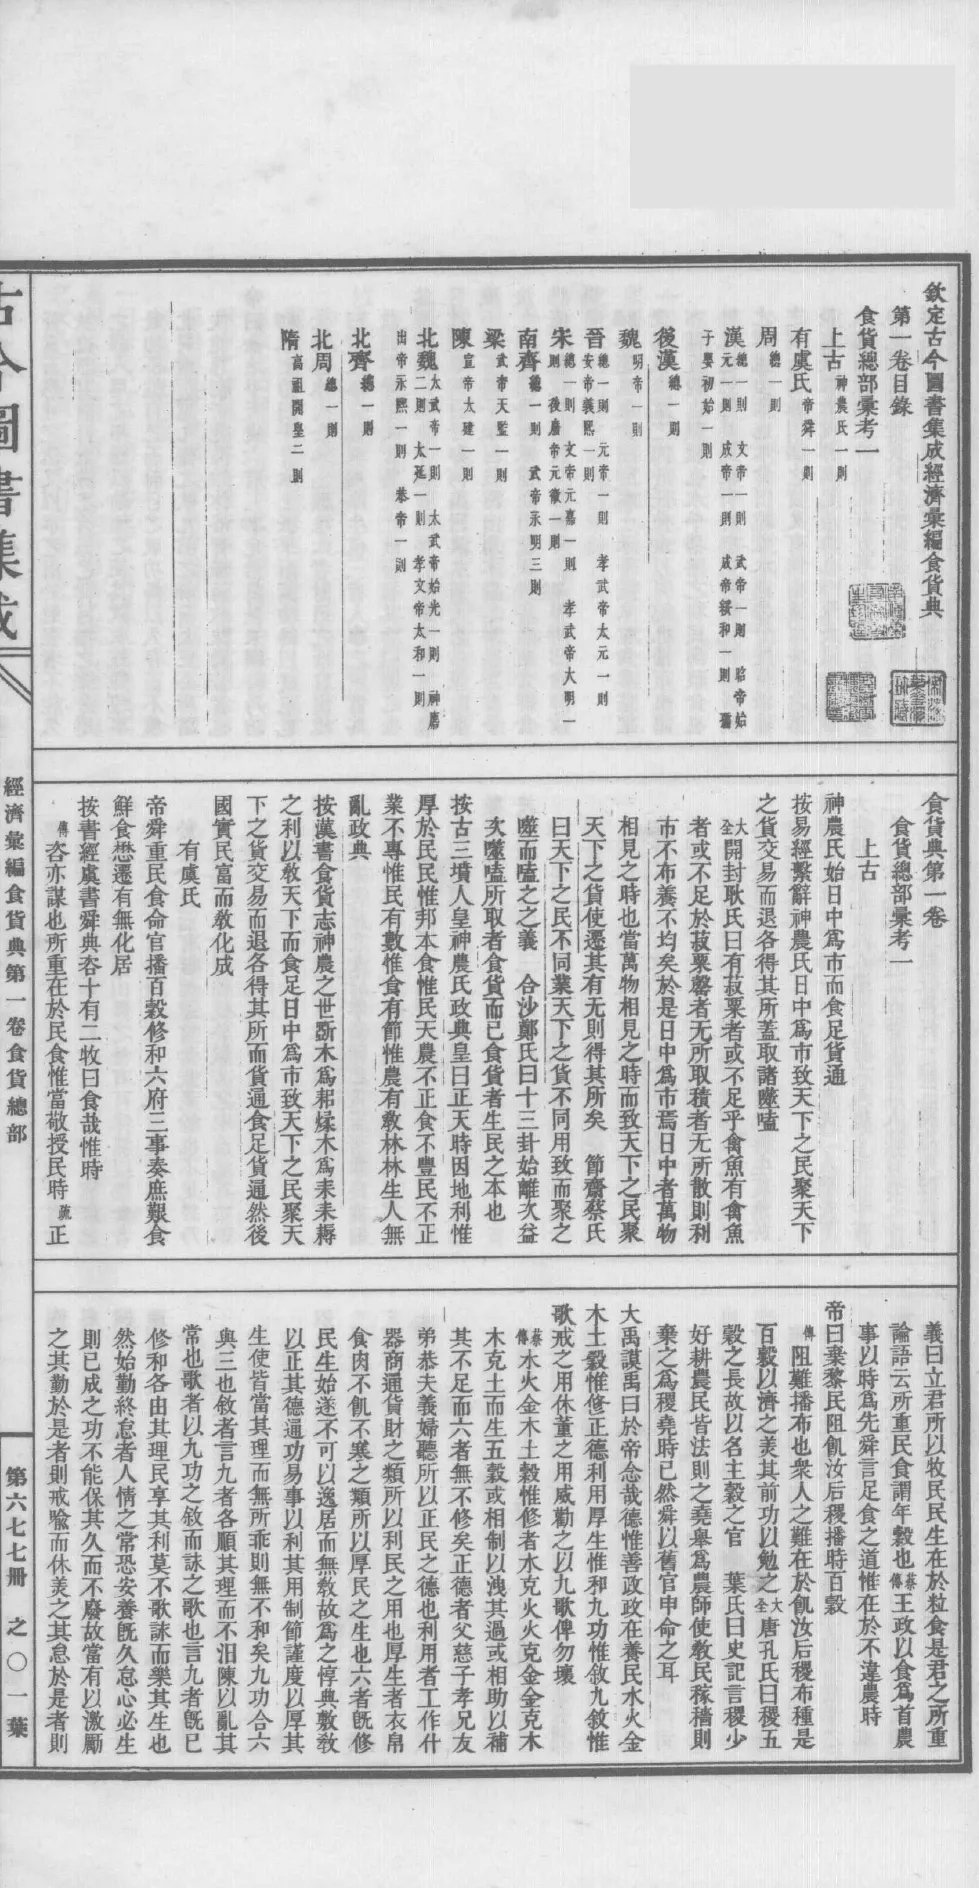 欽定古今圖書集成經濟彙編食貨典
第一卷目錄
食貨總部彙考一
上古神農氏一則
有虞氏帝舜一則
周總一則
漢總一則 文帝一則 武帝一則 昭帝始
元一則 成帝一則 成帝綏和一則 孺
子嬰初始一則
後漢總一則
魏明帝一則
晉總一則 元帝一則 孝武帝太元一則
安帝義熙一則
宋總一則 文帝元嘉一則 孝武帝大明一
則 後廢帝元徽一則
南齊總一則 武帝永明三則
梁武帝天監一則
陳宣帝太建一則
北魏太武帝一則 太武帝始光一則 神䴥
二則 太延一則 孝文帝太和一則
出帝永熙一則 恭帝一則
北齊總一則
北周總一則
隋高祖開皇二則
食貨典第一卷
食貨總部彙考一
上古
神農氏始日中爲市而食足貨通
按易經繫辭神農氏日中爲市致天下之民聚天下
之貨交易而退各得其所蓋取諸噬嗑
大全開封耿氏曰有菽粟者或不足乎禽魚有禽魚
者或不足於菽粟罄者无所取積者无所散則利
市不布養不均矣於是日中爲市焉日中者萬物
相見之時也當萬物相見之時而致天下之民聚
天下之貨使遷其有无則得其所矣 節齋蔡氏
曰天下之民不同業天下之貨不同用致而聚之
噬而嗑之之義 合沙鄭氏曰十三卦始離次益
次噬嗑所取者食貨而已食貨者生民之本也
按古三墳人皇神農氏政典皇曰正天時因地利惟
厚於民民惟邦本食惟民天農不正食不豐民不正
業不專惟民有數惟食有節惟農有敎林林生人無
亂政典
按漢書食貨志神農之世斲木爲耜煣木爲耒耒耨
之利以敎天下而食足日中爲市致天下之民聚天
下之貨交易而退各得其所而貨通食足貨通然後
國實民富而敎化成
有虞氏
帝舜重民食命官播百穀修和六府三事奏庶艱食
鮮食懋遷有無化居
按書經虞書舜典咨十有二牧曰食哉惟時
傳咨亦謀也所重在於民食惟當敬授民時 疏正
義曰立君所以牧民民生在於粒食是君之所重
論語云所重民食謂年穀也 蔡傳王政以食爲首農
事以時爲先舜言足食之道惟在於不違農時
帝曰棄黎民阻飢汝后稷播時百穀
傳阻難播布也衆人之難在於飢汝后稷布種是
百穀以濟之美其前功以勉之 大全唐孔氏曰稷五
穀之長故以名主穀之官 葉氏曰史記言稷少
好耕農民皆法則之堯舉爲農師使敎民稼穡則
棄之爲稷堯時已然舜以舊官申命之耳
大禹謨禹曰於帝念哉德惟善政政在養民水火金
木土穀惟修正德利用厚生惟和九功惟敘九敘惟
歌戒之用休董之用威勸之以九歌俾勿壞
蔡傳水火金木土穀惟修者水克火火克金金克木
木克土而生五穀或相制以洩其過或相助以補
其不足而六者無不修矣正德者父慈子孝兄友
弟恭夫義婦聽所以正民之德也利用者工作什
器商通貨財之類所以利民之用也厚生者衣帛
食肉不飢不寒之類所以厚民之生也六者旣修
民生始遂不可以逸居而無敎故爲之惇典敷敎
以正其德通功易事以利其用制節謹度以厚其
生使皆當其理而無所乖則無不和矣九功合六
與三也敘者言九者各順其理而不汨陳以亂其
常也歌者以九功之敘而詠之歌也言九者旣已
修和各由其理民享其利莫不歌詠而樂其生也
然始勤終怠者人情之常恐安養旣久怠心必生
則已成之功不能保其久而不廢故當有以激勵
之其勤於是者則戒喩而休美之其怠於是者則
古今圖書集成
經濟彙編食貨典第一卷食貨總部
第六七七冊 之〇一葉